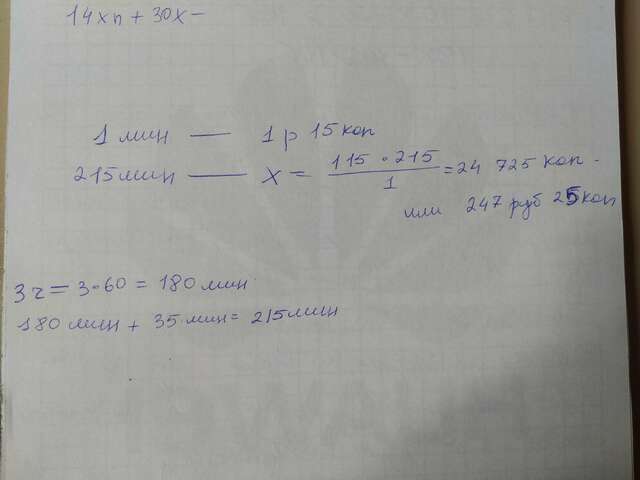 14xn + 30x -
1 мин — 1 р 15 коп
215 мин — x = 115 · 215 / 1 = 24 725 коп.
или 247 руб 25 коп
3 ч = 3·60 = 180 мин
180 мин + 35 мин = 215 мин